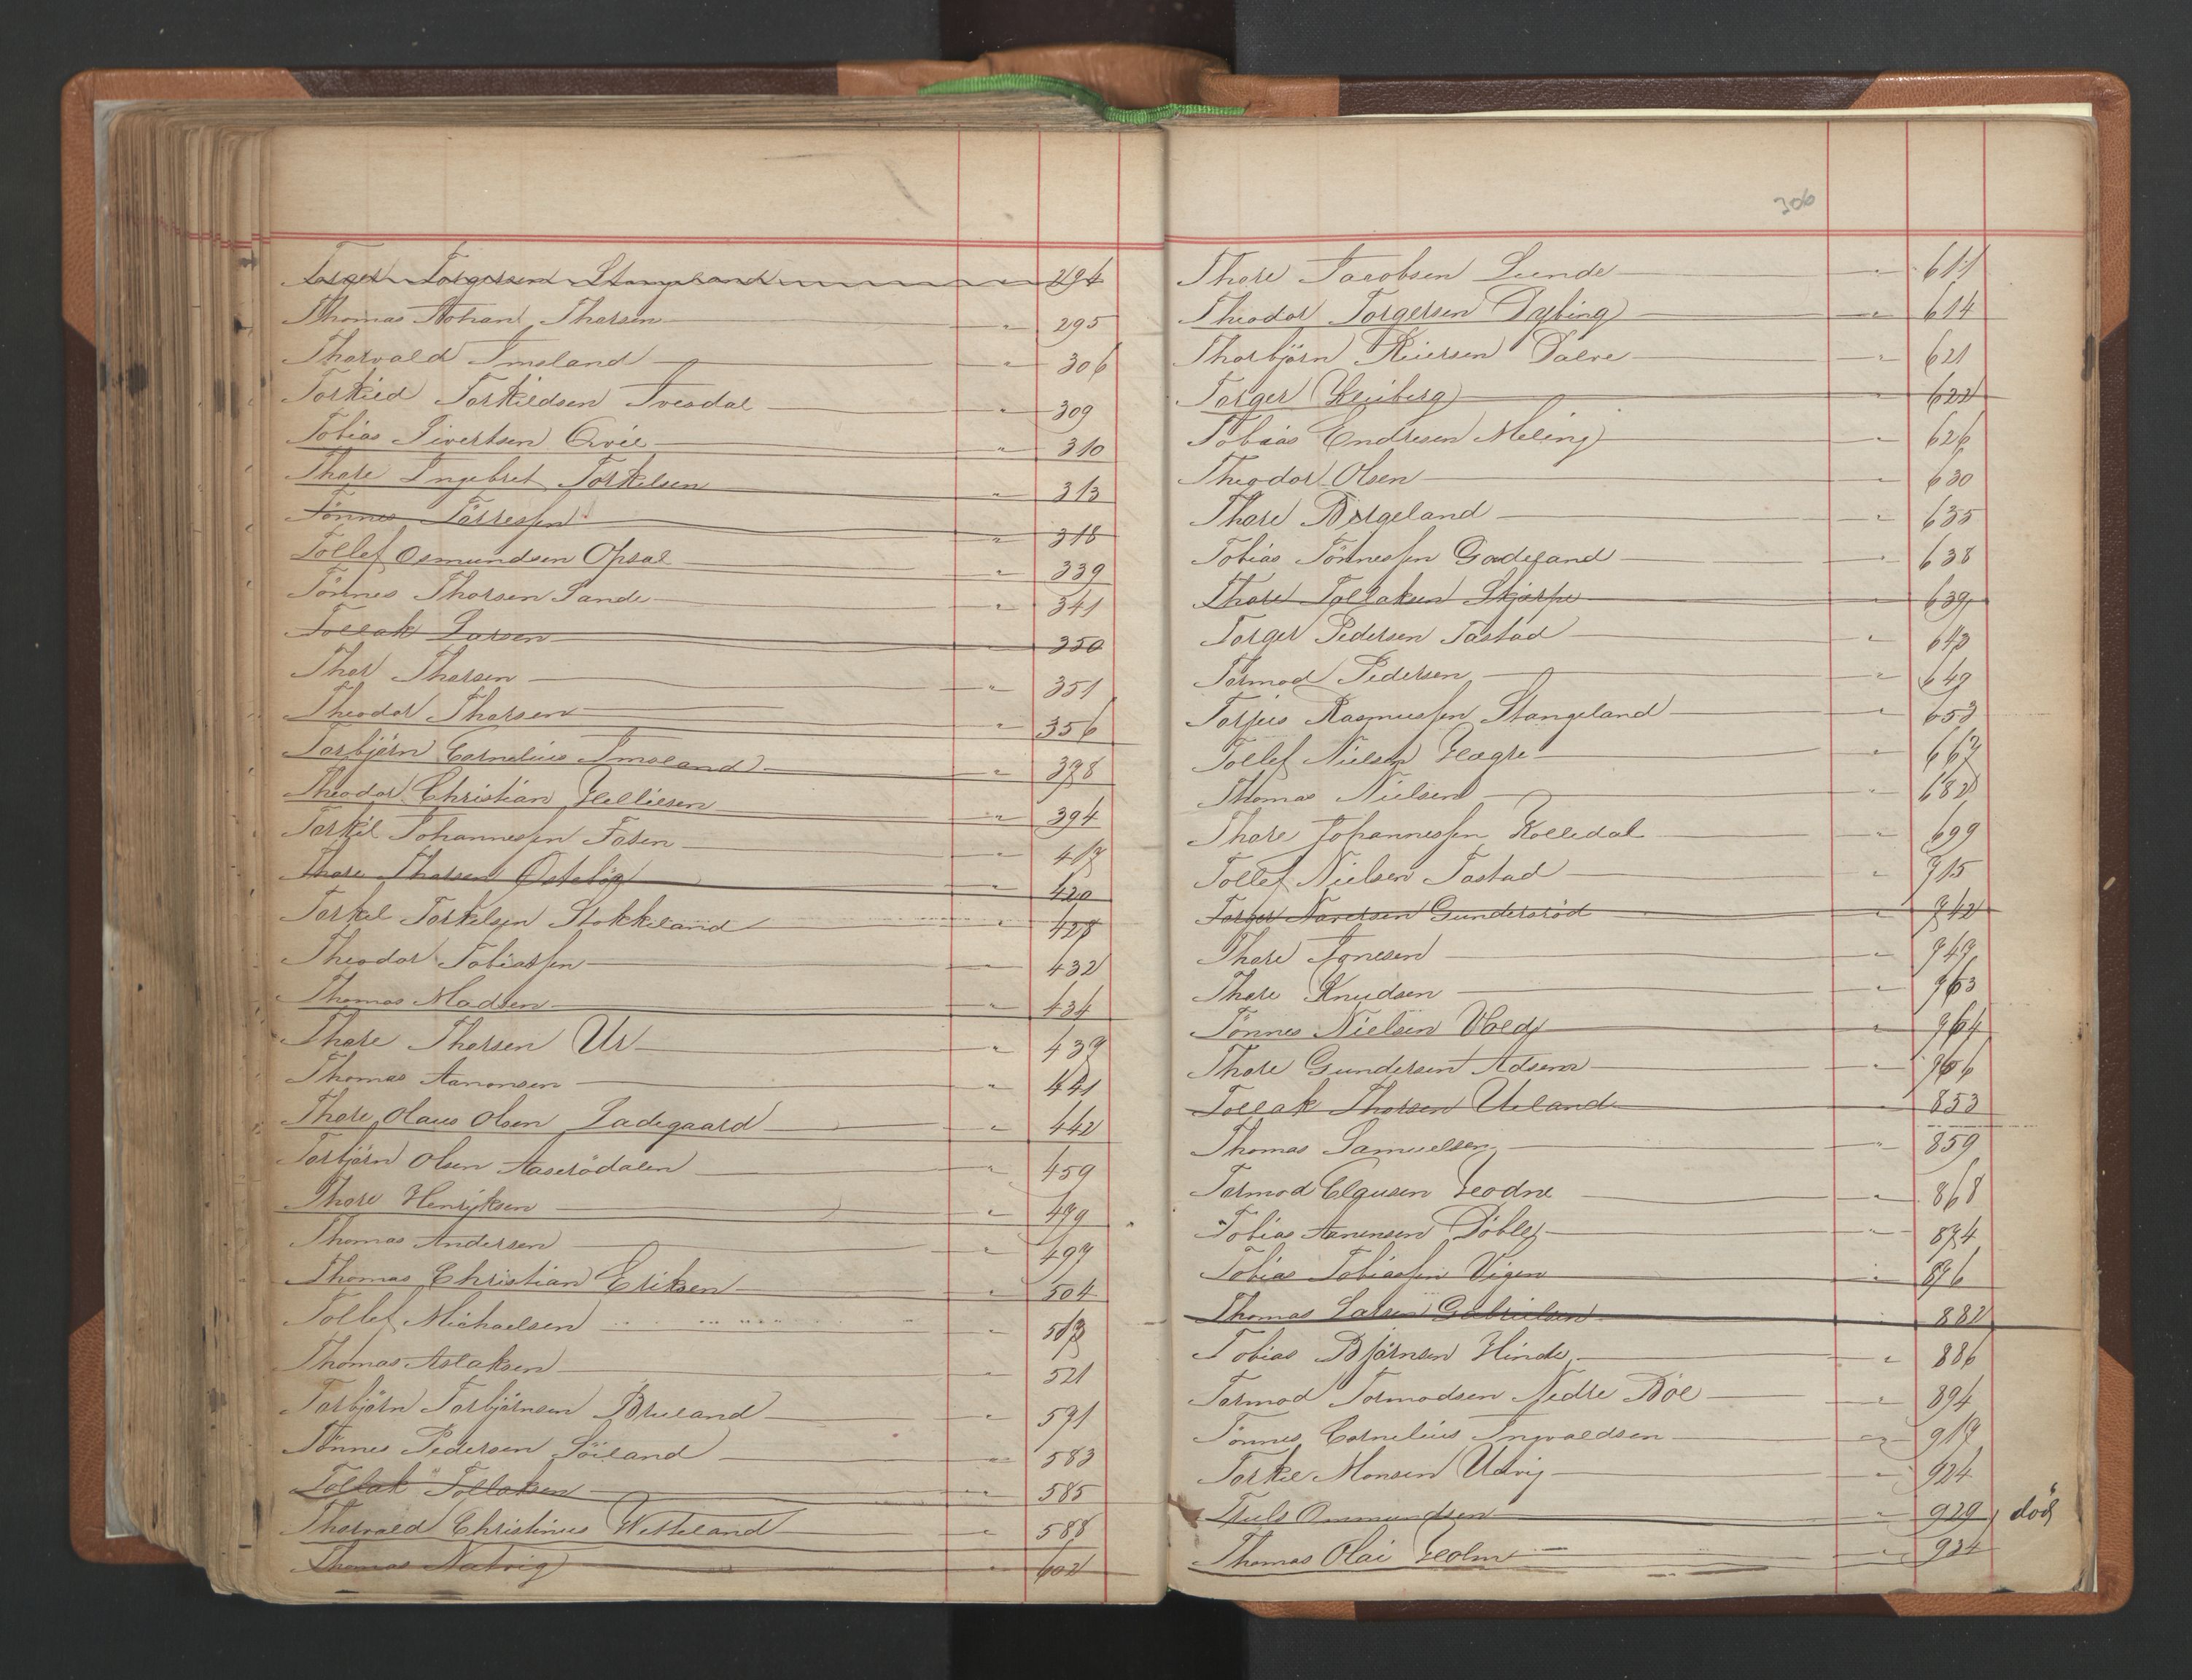 Torger Torgersen Stangeland 294
Thomas Johan Thorsen " 295
Thorvald Imsland " 306
Torkild Torkildsen Tvesdal " 309
Tobias Sivertsen Qvie " 310
Thore Ingebret Torkelsen " 313
Tönnes Törressen " 318
Tollef Osmundsen Opsal " 339
Tönnes Thorsen Sande " 341
Tollak Larsen " 350
Thor Thorsen " 351
Theodor Thorsen " 356
Torbjörn Cornelius Imsland " 378
Theodor Christian Helliesen " 394
Torkil Johannessen Fosen " 417
Thore Thorsen Östebög " 420
Torkel Torkelsen Stokkeland " 428
Theodor Tobiassen " 432
Thomas Madsen " 434
Thore Thorsen Ur " 437
Thomas Aanonsen " 441
Thore Olaus Olsen Ladegaard " 442
Torbjörn Olsen Aaserödalen " 459
Thore Henriksen " 479
Thomas Andersen " 497
Thomas Christian Eriksen " 504
Tollef Michaelsen " 517
Thomas Aslaksen 521
Torbjörn Torbjörnsen Brueland " 571
Tönnes Pedersen Söiland " 583
Tollak Tollaksen " 585
Thorvald Christinus Wetteland " 588
Thomas Natvig " 602
306
Thore Jacobsen Lunde " 611
Theodor Torgersen Dybing " 614
Thorbjörn Reiersen Dalve " 621
Torger Kleiberg " 622
Tobias Endresen Meling " 626
Theodor Olsen " 630
Thore Bergeland " 635
Tobias Tönnessen Godeland " 638
Thore Tollaksen Skjörpe " 639
Torger Pedersen Tastad " 643
Tormod Pedersen " 649
Torjus Rasmussen Stangeland " 653
Tollef Nielsen Hagre " 667
Thomas Nielsen " 682
Thore Johannessen Kolledal " 699
Tollef Nielsen Tastad " 715
Torger Gundersröd " 742
Thore Tonesen " 749
Thore Knudsen " 763
Tönnes Nielsen Vold " 764
Thore Gundersen Adsen " 766
Tollak Thorsen Ueland " 853
Thomas Samuelsen " 859
Tormod Elgusen Hodne " 868
Tobias Aanensen Döble " 874
Tobias Tobiassen Vigen " 876
Thomas Larsen Gabrielsen " 882
Tobias Björnsen Hinde " 886
Tormod Tormodsen Nedre Böe " 894
Tönnes Cornelius Ingvaldsen " 917
Torkel Monsen Udvig " 924
Truls Ommundsen " 929 död
Thomas Olai Holm " 934